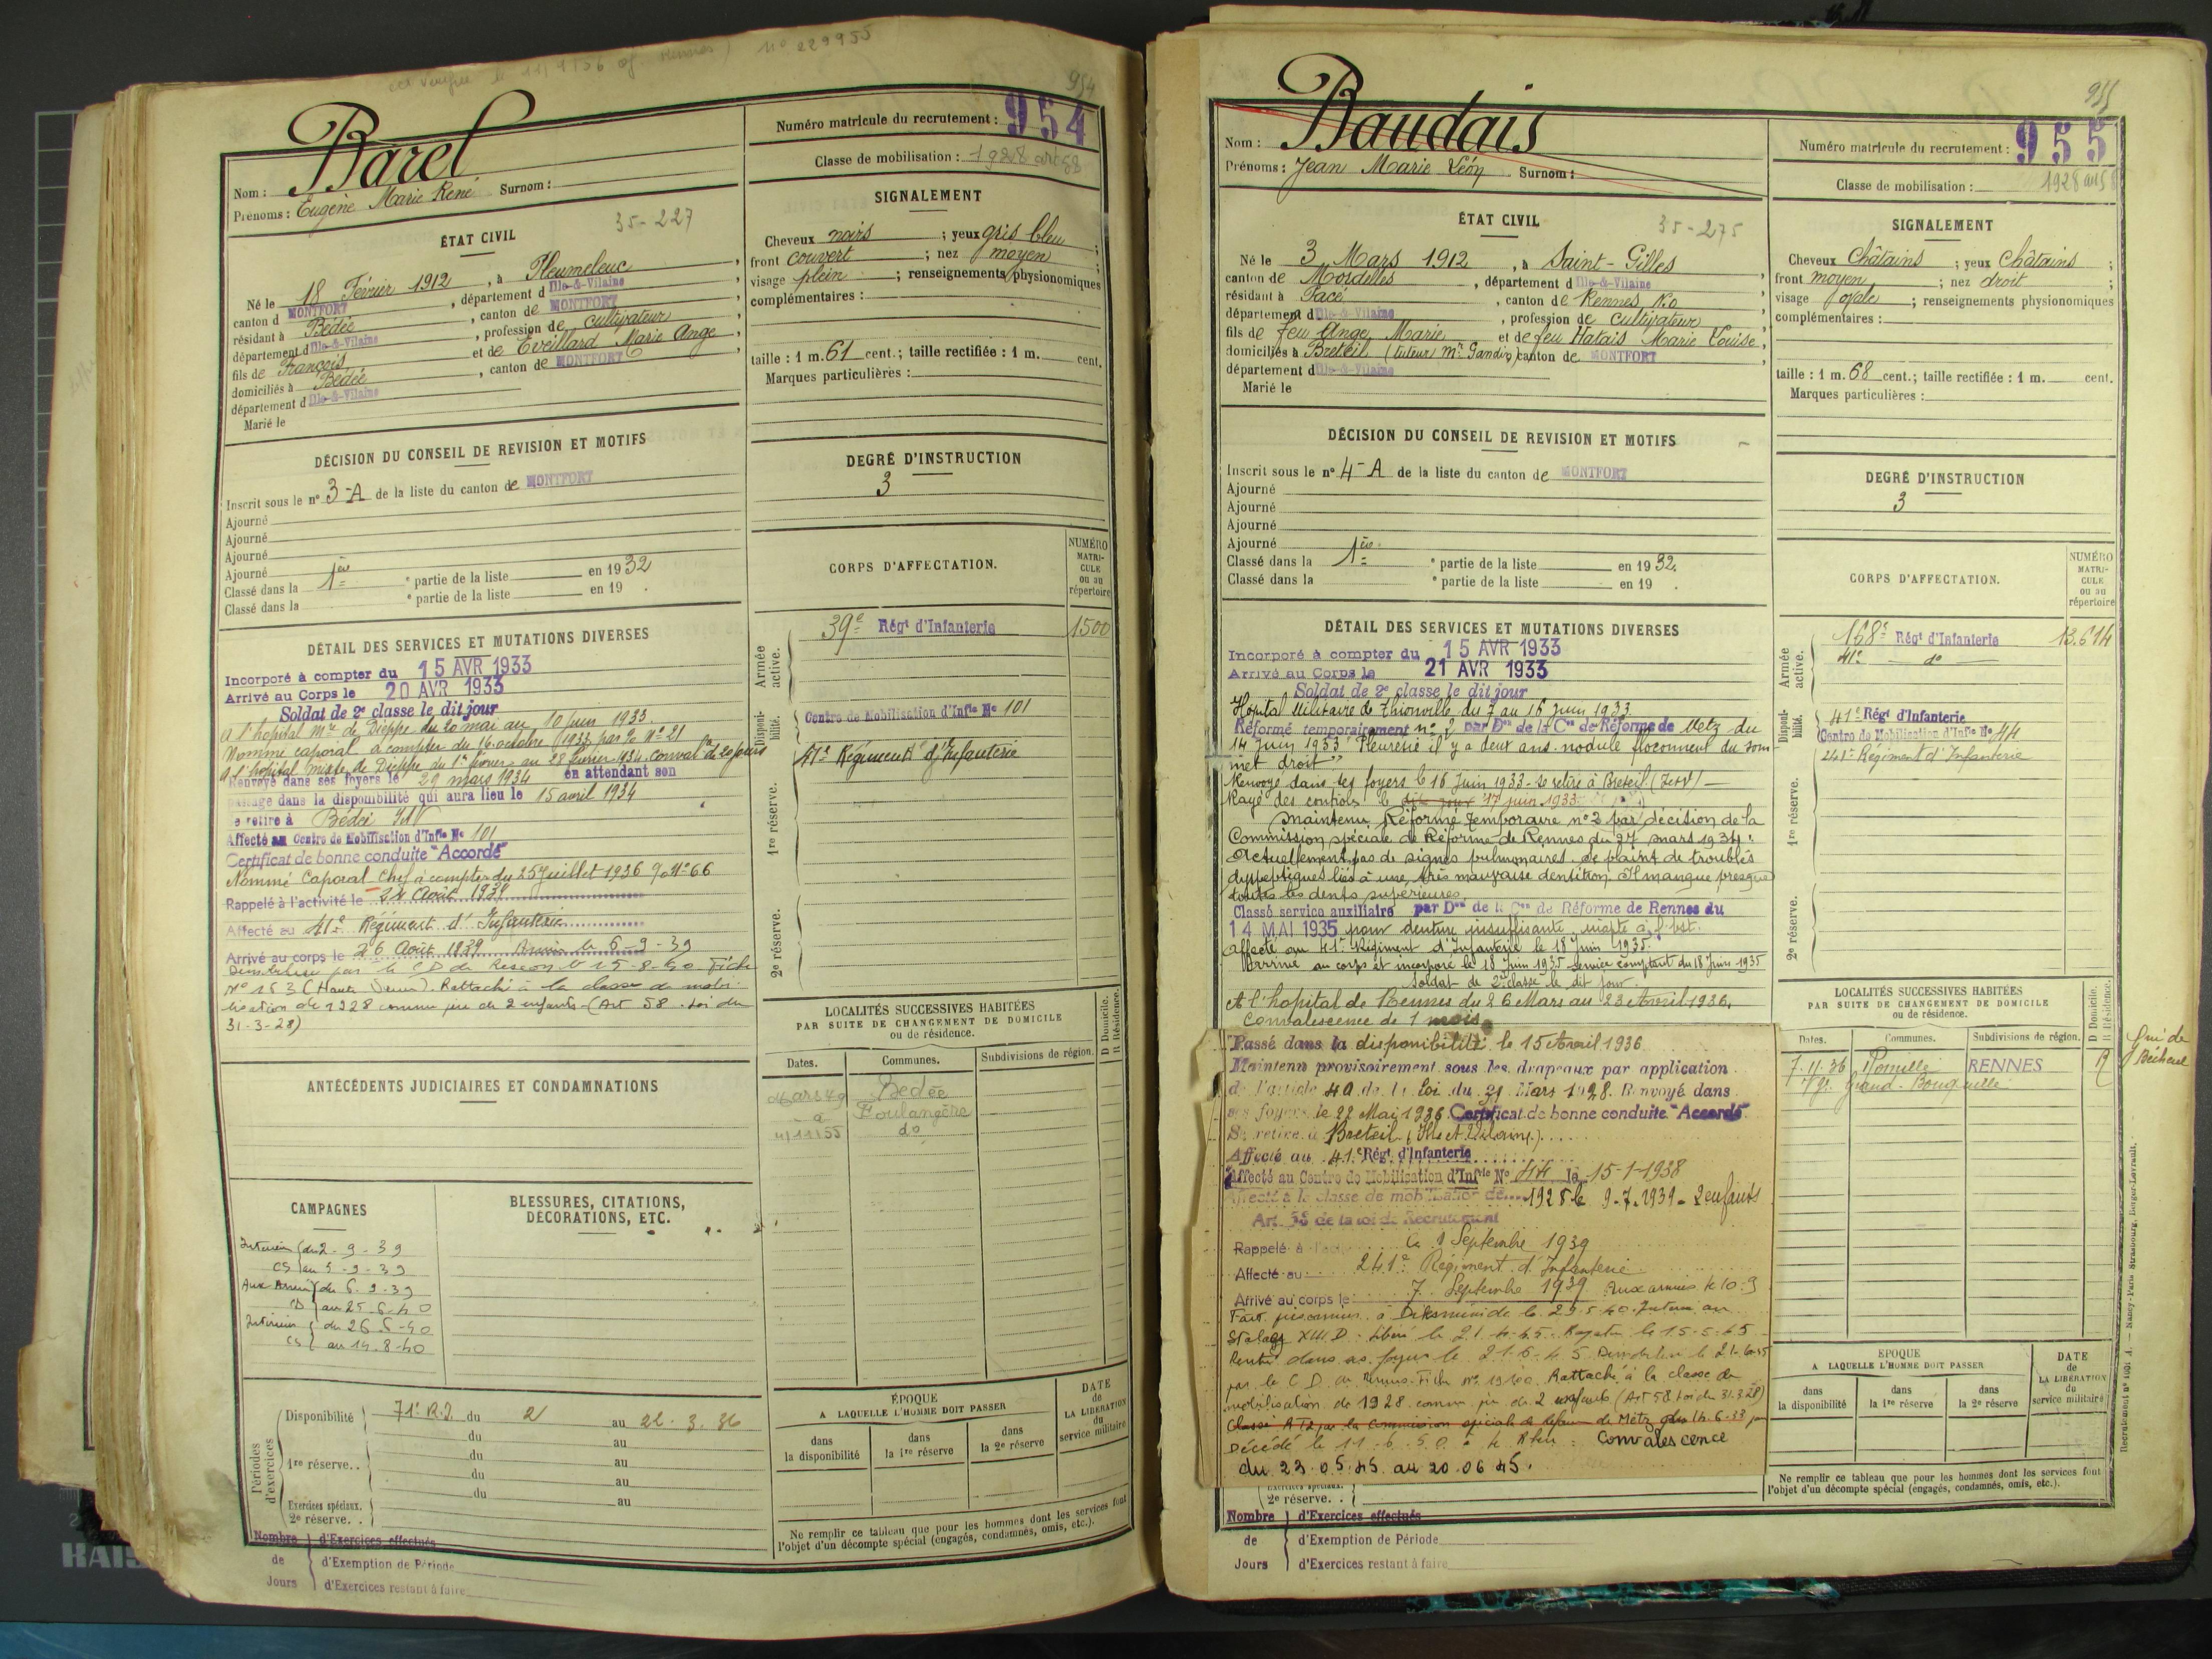 954
Barel
Nom :
Prénoms : Eugène Marie René Surnom :
Numéro matricule du recrutement : 954
Classe de mobilisation : 1928 art 58
ÉTAT CIVIL
35-227
Né le 18 Février 1912, à Pleumeleuc,
canton d MONTFORT, département d Ille-&-Vilaine,
résidant à Bédée, canton de MONTFORT,
département d Ille-&-Vilaine, profession de cultivateur,
fils de François et de Eveillard Marie Ange,
domiciliés à Bédée, canton de MONTFORT,
département d Ille-&-Vilaine
Marié le
SIGNALEMENT
Cheveux noirs ; yeux gris bleu ;
front couvert ; nez moyen ;
visage plein ; renseignements physionomiques
complémentaires :
taille : 1 m. 61 cent. ; taille rectifiée : 1 m. cent.
Marques particulières :
DÉCISION DU CONSEIL DE REVISION ET MOTIFS
Inscrit sous le n° 3-A de la liste du canton de MONTFORT
Ajourné
Ajourné
Ajourné
Ajourné
Classé dans la 1ère ° partie de la liste en 1932
Classé dans la ° partie de la liste en 19 .
DEGRÉ D'INSTRUCTION
3
DÉTAIL DES SERVICES ET MUTATIONS DIVERSES
Incorporé à compter du 15 AVR 1933
Arrivé au Corps le 20 AVR 1933
Soldat de 2e classe le dit jour
A l'hopital Mre de Dieppe du 20 mai au 10 Juin 1933.
Nommé caporal à compter du 16 octobre 1933 par N° 21
A l'hôpital mixte de Dieppe du 1er février au 28 février 1934. Conval. de 20 jours
Renvoyé dans ses foyers le 29 mars 1934 en attendant son
passage dans la disponibilité qui aura lieu le 15 avril 1934
se retire à Bédée I&V
Affecté au Centre de Mobilisation d'Infie N° 101
Certificat de bonne conduite "Accordé"
Nommé Caporal Chef à compter du 25 Juillet 1936 N° 66
Rappelé à l'activité le 24 Août 1939
Affecté au 41e Régiment d'Infanterie
Arrivé au corps le 26 Août 1939 le 6-9-39
par le CD de le 15-8-40 Fiche
N° 153 (Haute Vienne). Rattaché à la classe de mobi-
lisation de 1928 comme père de 2 enfants (Art 58. Loi du
31-3-28)
CORPS D'AFFECTATION.
NUMÉRO MATRI-CULE ou au répertoire
Armée active.
39e Régt d'Infanterie 1500
Disponi-bilité.
Centre de Mobilisation d'Infie N° 101
1re réserve.
41e Régiment d'Infanterie
2e réserve.
ANTÉCÉDENTS JUDICIAIRES ET CONDAMNATIONS
LOCALITÉS SUCCESSIVES HABITÉES
PAR SUITE DE CHANGEMENT DE DOMICILE
ou de résidence.
Dates. Communes. Subdivisions de région. D Domicile. R Résidence.
Mars 49 Bédée
à Boulangerie
4/11/55 do
CAMPAGNES
Intérieur du 2-9-39
CS au 5-9-39
Aux Armées du 6-9-39
CD au 25-6-40
Intérieur du 26-6-40
CS au 14-8-40
BLESSURES, CITATIONS,
DÉCORATIONS, ETC.
Périodes d'exercices
Disponibilité 71e R.I. du 2 au 22.3.36
du au
1re réserve.. du au
du au
du au
Exercices spéciaux.
2e réserve. . au
Nombre d'Exercices effectués
de d'Exemption de Période
Jours d'Exercices restant à faire
ÉPOQUE
A LAQUELLE L'HOMME DOIT PASSER
dans la disponibilité dans la 1re réserve dans la 2e réserve
DATE de LA LIBÉRATION du service militaire
Ne remplir ce tableau que pour les hommes dont les services font
l'objet d'un décompte spécial (engagés, condamnés, omis, etc.).
955
Baudais
Nom :
Prénoms : Jean Marie Léon Surnom :
Numéro matricule du recrutement : 955
Classe de mobilisation : 1928 art 58
ÉTAT CIVIL
35-275
Né le 3 Mars 1912, à Saint-Gilles,
canton de Mordelles, département d Ille-&-Vilaine,
résidant à Pacé, canton de Rennes No,
département d Ille-&-Vilaine, profession de cultivateur,
fils de feu Ange Marie et de feu Hatais Marie Louise,
domiciliés à Breteil (tuteur Mr Gandin) canton de MONTFORT,
département d Ille-&-Vilaine
Marié le
SIGNALEMENT
Cheveux Châtains ; yeux Châtains ;
front moyen ; nez droit ;
visage ovale ; renseignements physionomiques
complémentaires :
taille : 1 m. 68 cent. ; taille rectifiée : 1 m. cent.
Marques particulières :
DÉCISION DU CONSEIL DE REVISION ET MOTIFS
Inscrit sous le n° 4-A de la liste du canton de MONTFORT
Ajourné
Ajourné
Ajourné
Ajourné
Classé dans la 1ère ° partie de la liste en 1932.
Classé dans la ° partie de la liste en 19 .
DEGRÉ D'INSTRUCTION
3
DÉTAIL DES SERVICES ET MUTATIONS DIVERSES
Incorporé à compter du 15 AVR 1933
Arrivé au Corps le 21 AVR 1933
Soldat de 2e classe le dit jour
Hopital Militaire de Thionville du 7 au 16 Juin 1933
Réformé temporairement n° 2 par Don de la Con de Réforme de Metz du
14 Juin 1933 "Pleurésie il y a deux ans nodule floconneux du som-
met droit"
Renvoyé dans ses foyers le 16 Juin 1933 - se retire à Breteil (I et V) -
Rayé des contrôles le dit jour 17 juin 1933
Maintenu Réformé Temporaire n° 2 par décision de la
Commission spéciale de Réforme de Rennes du 27 mars 1934:
Actuellement pas de signes pulmonaires. Se plaint de troubles
dyspeptiques liés à une très mauvaise dentition. Il manque presque
toutes les dents supérieures
Classé service auxiliaire par Don de la Con de Réforme de Rennes du
14 MAI 1935 pour denture insuffisante, inapte a
Affecté au 41e Régiment d'Infanterie le 18 Juin 1935.
Arrivé au corps et incorporé le 18 Juin 1935 service comptant du 18 Juin 1935
Soldat de 2e classe le dit jour.
A l'hopital de Rennes du 26 Mars au 23 Avril 1936,
Convalescence de 1 mois
Passé dans la disponibilité le 15 Avril 1936
Maintenu provisoirement sous les drapeaux par application
de l'article 40 de la loi du 31 Mars 1928. Renvoyé dans
ses foyers le 22 Mai 1936 Certificat de bonne conduite "Accordé"
Se retire à Breteil (Ille et Vilaine)
Affecté au 41e Régt d'Infanterie
Affecté au Centre de Mobilisation d'Infie N° 44 le 15-1-1938
Affecté à la classe de mobilisation de 1928 le 9-7-1939 - 2 enfants
Art 58 de la loi de Recrutement
Rappelé à l' Septembre 1939
Affecté au 241e Régiment d'Infanterie
Arrivé au corps le 7 Septembre 1939 Aux armées le 10-9
Fait prisonnier à le 29-5-40. Interné au
Stalag XIII D. Libéré le 21-4-45. le 15-5-45
Rentré dans ses foyers le 21-6-45 Démobilisé le 21-6-45
par le CD de Rennes. Fiche N° 19100. Rattaché à la classe de
mobilisation de 1928 comme père de 2 enfants (Art 58 Loi du 31.3.28)
Classé RT2 par la commission spéciale de Réforme de Metz du 14-6-33 pour
Décédé le 11-6-50 à le Rheu : Convalescence
du 23.05.45 au 20.06.45.
CORPS D'AFFECTATION.
NUMÉRO MATRI-CULE ou au répertoire
Armée active.
168e Régt d'Infanterie 13.614
41e do
Disponi-bilité.
41e Régt d'Infanterie
Centre de Mobilisation d'Infie N° 44
1re réserve.
241e Régiment d'Infanterie
2e réserve.
LOCALITÉS SUCCESSIVES HABITÉES
PAR SUITE DE CHANGEMENT DE DOMICILE
ou de résidence.
Dates. Communes. Subdivisions de région. D Domicile. R Résidence.
7-11-36 Romillé RENNES R
Grand
Bécherel
2e réserve. .
Nombre d'Exercices effectués
de d'Exemption de Période
Jours d'Exercices restant à faire
EPOQUE
A LAQUELLE L'HOMME DOIT PASSER
dans la disponibilité dans la 1re réserve dans la 2e réserve
DATE de LA LIBÉRATION du service militaire
Ne remplir ce tableau que pour les hommes dont les services font
l'objet d'un décompte spécial (engagés, condamnés, omis, etc.).